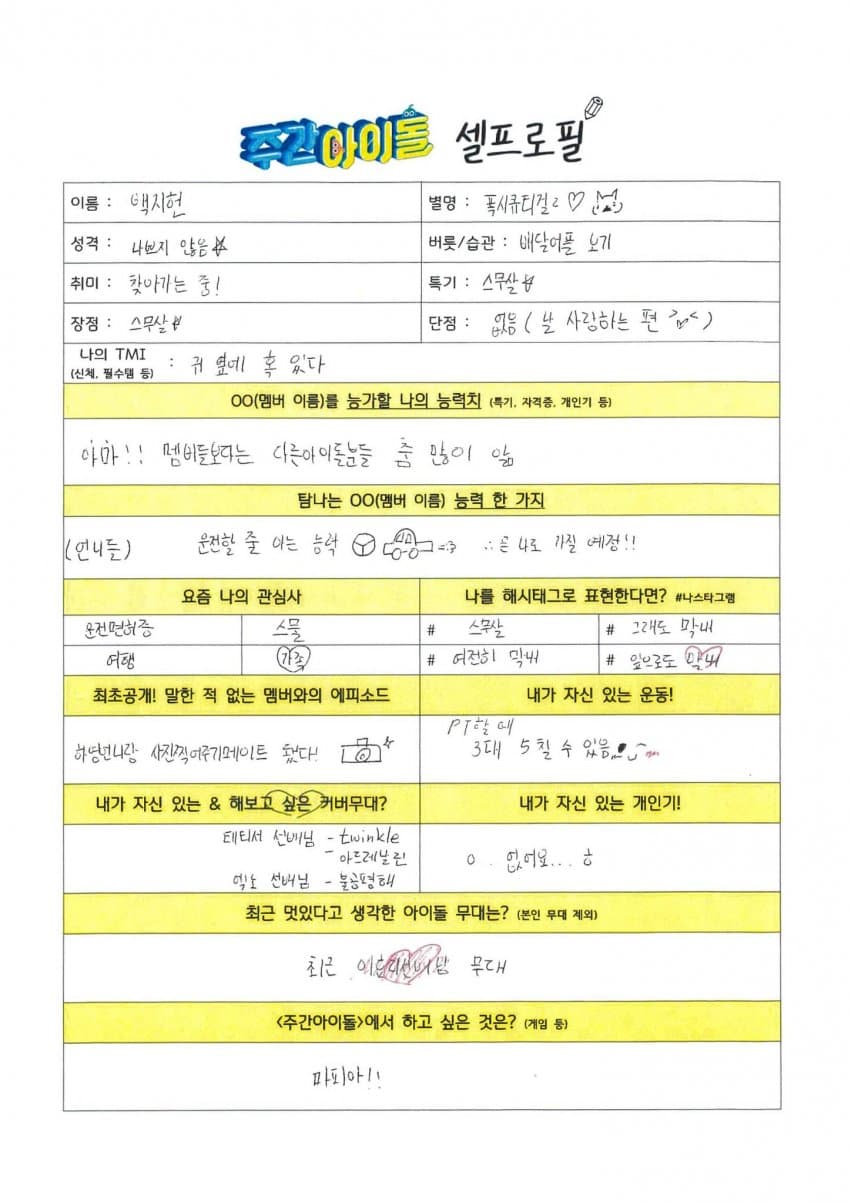 주간아이돌 셀프로필
이름 : 백지헌 별명 : 폭시큐티걸2 ♡
성격 : 나쁘지 않음 버릇/습관 : 배달어플 보기
취미 : 찾아가는 중! 특기 : 스무살
장점 : 스무살 단점 : 없음 ( 날 사랑하는 편 >ㅅ< )
나의 TMI
(신체, 필수템 등) : 귀 옆에 혹 있다
OO(멤버 이름)를 능가할 나의 능력치 (특기, 자격증, 개인기 등)
아마!! 멤버들보다는 다른아이돌분들 춤 많이 앎
탐나는 OO(멤버 이름) 능력 한 가지
(언니들) 운전할 줄 아는 능력 =3 ∴ 곧 나도 가질 예정!!
요즘 나의 관심사 나를 해시태그로 표현한다면? #나스타그램
운전면허증 스물 # 스무살 # 그래도 막내
여행 가족 # 여전히 막내 # 앞으로도 막내
최초공개! 말한 적 없는 멤버와의 에피소드 내가 자신 있는 운동!
PT할 때
하영언니랑 사진찍어주기메이트 됐다! 3대 5칠 수 있음
내가 자신 있는 & 해보고 싶은 커버무대? 내가 자신 있는 개인기!
태티서 선배님 - twinkle
- 아드레날린
엑소 선배님 - 불공평해
0. 없어요... ㅎ
최근 멋있다고 생각한 아이돌 무대는? (본인 무대 제외)
최근 이효리선배님 무대
<주간아이돌>에서 하고 싶은 것은? (게임 등)
마피아!!